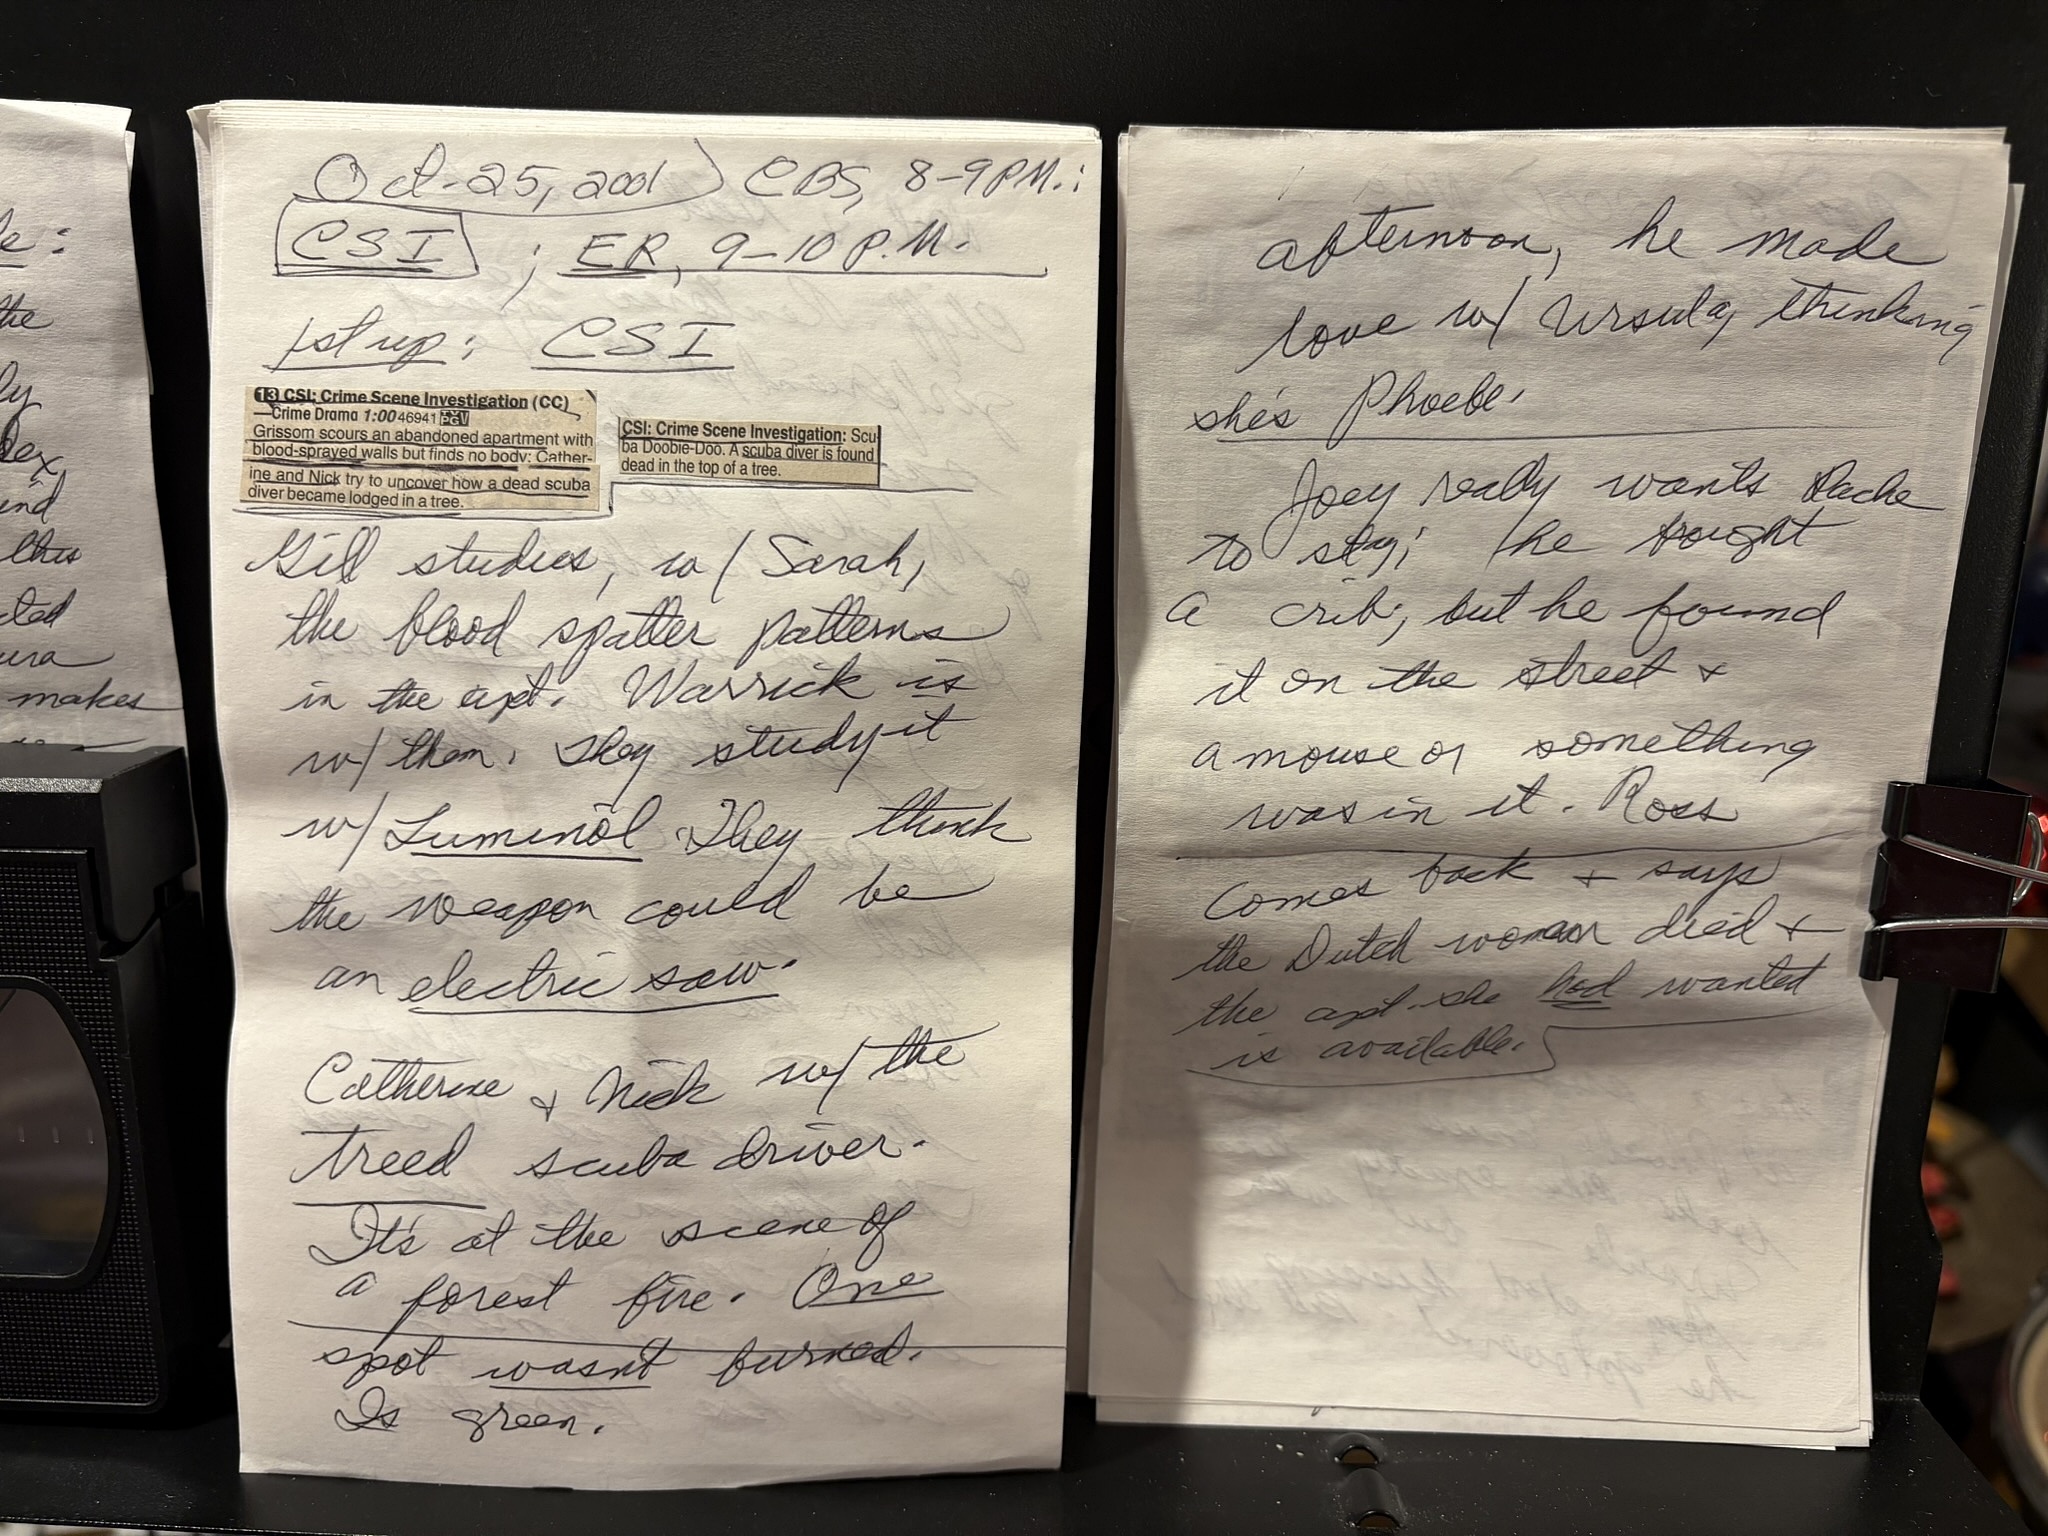 le:
the
ly
dex,
ind
this
cted
ura
makes
Oct-25, 2001) CBS, 8-9PM.:
CSI ; ER, 9-10 P.M.
1st up: CSI
13 CSI: Crime Scene Investigation (CC)
—Crime Drama 1:00 46941 TV PGV
Grissom scours an abandoned apartment with
blood-sprayed walls but finds no body; Cather-
ine and Nick try to uncover how a dead scuba
diver became lodged in a tree.
CSI: Crime Scene Investigation: Scu
ba Doobie-Doo. A scuba diver is found
dead in the top of a tree.
Gill studies, w/ Sarah,
the blood spatter patterns
in the apt. Warrick is
w/ them. They study it
w/ Luminol. They think
the weapon could be
an electric saw.
Catherine & Nick w/ the
treed scuba driver.
It's at the scene of
a forest fire. One
spot wasnt burned.
Is green.
afternoon, he made
love w/ Ursula, thinking
she's Phoebe.
Joey really wants Rache
to stay; he bought
a crib; but he found
it on the street &
a mouse or something
was in it. Ross
comes back & says
the Dutch woman died &
the apt. she had wanted
is available.